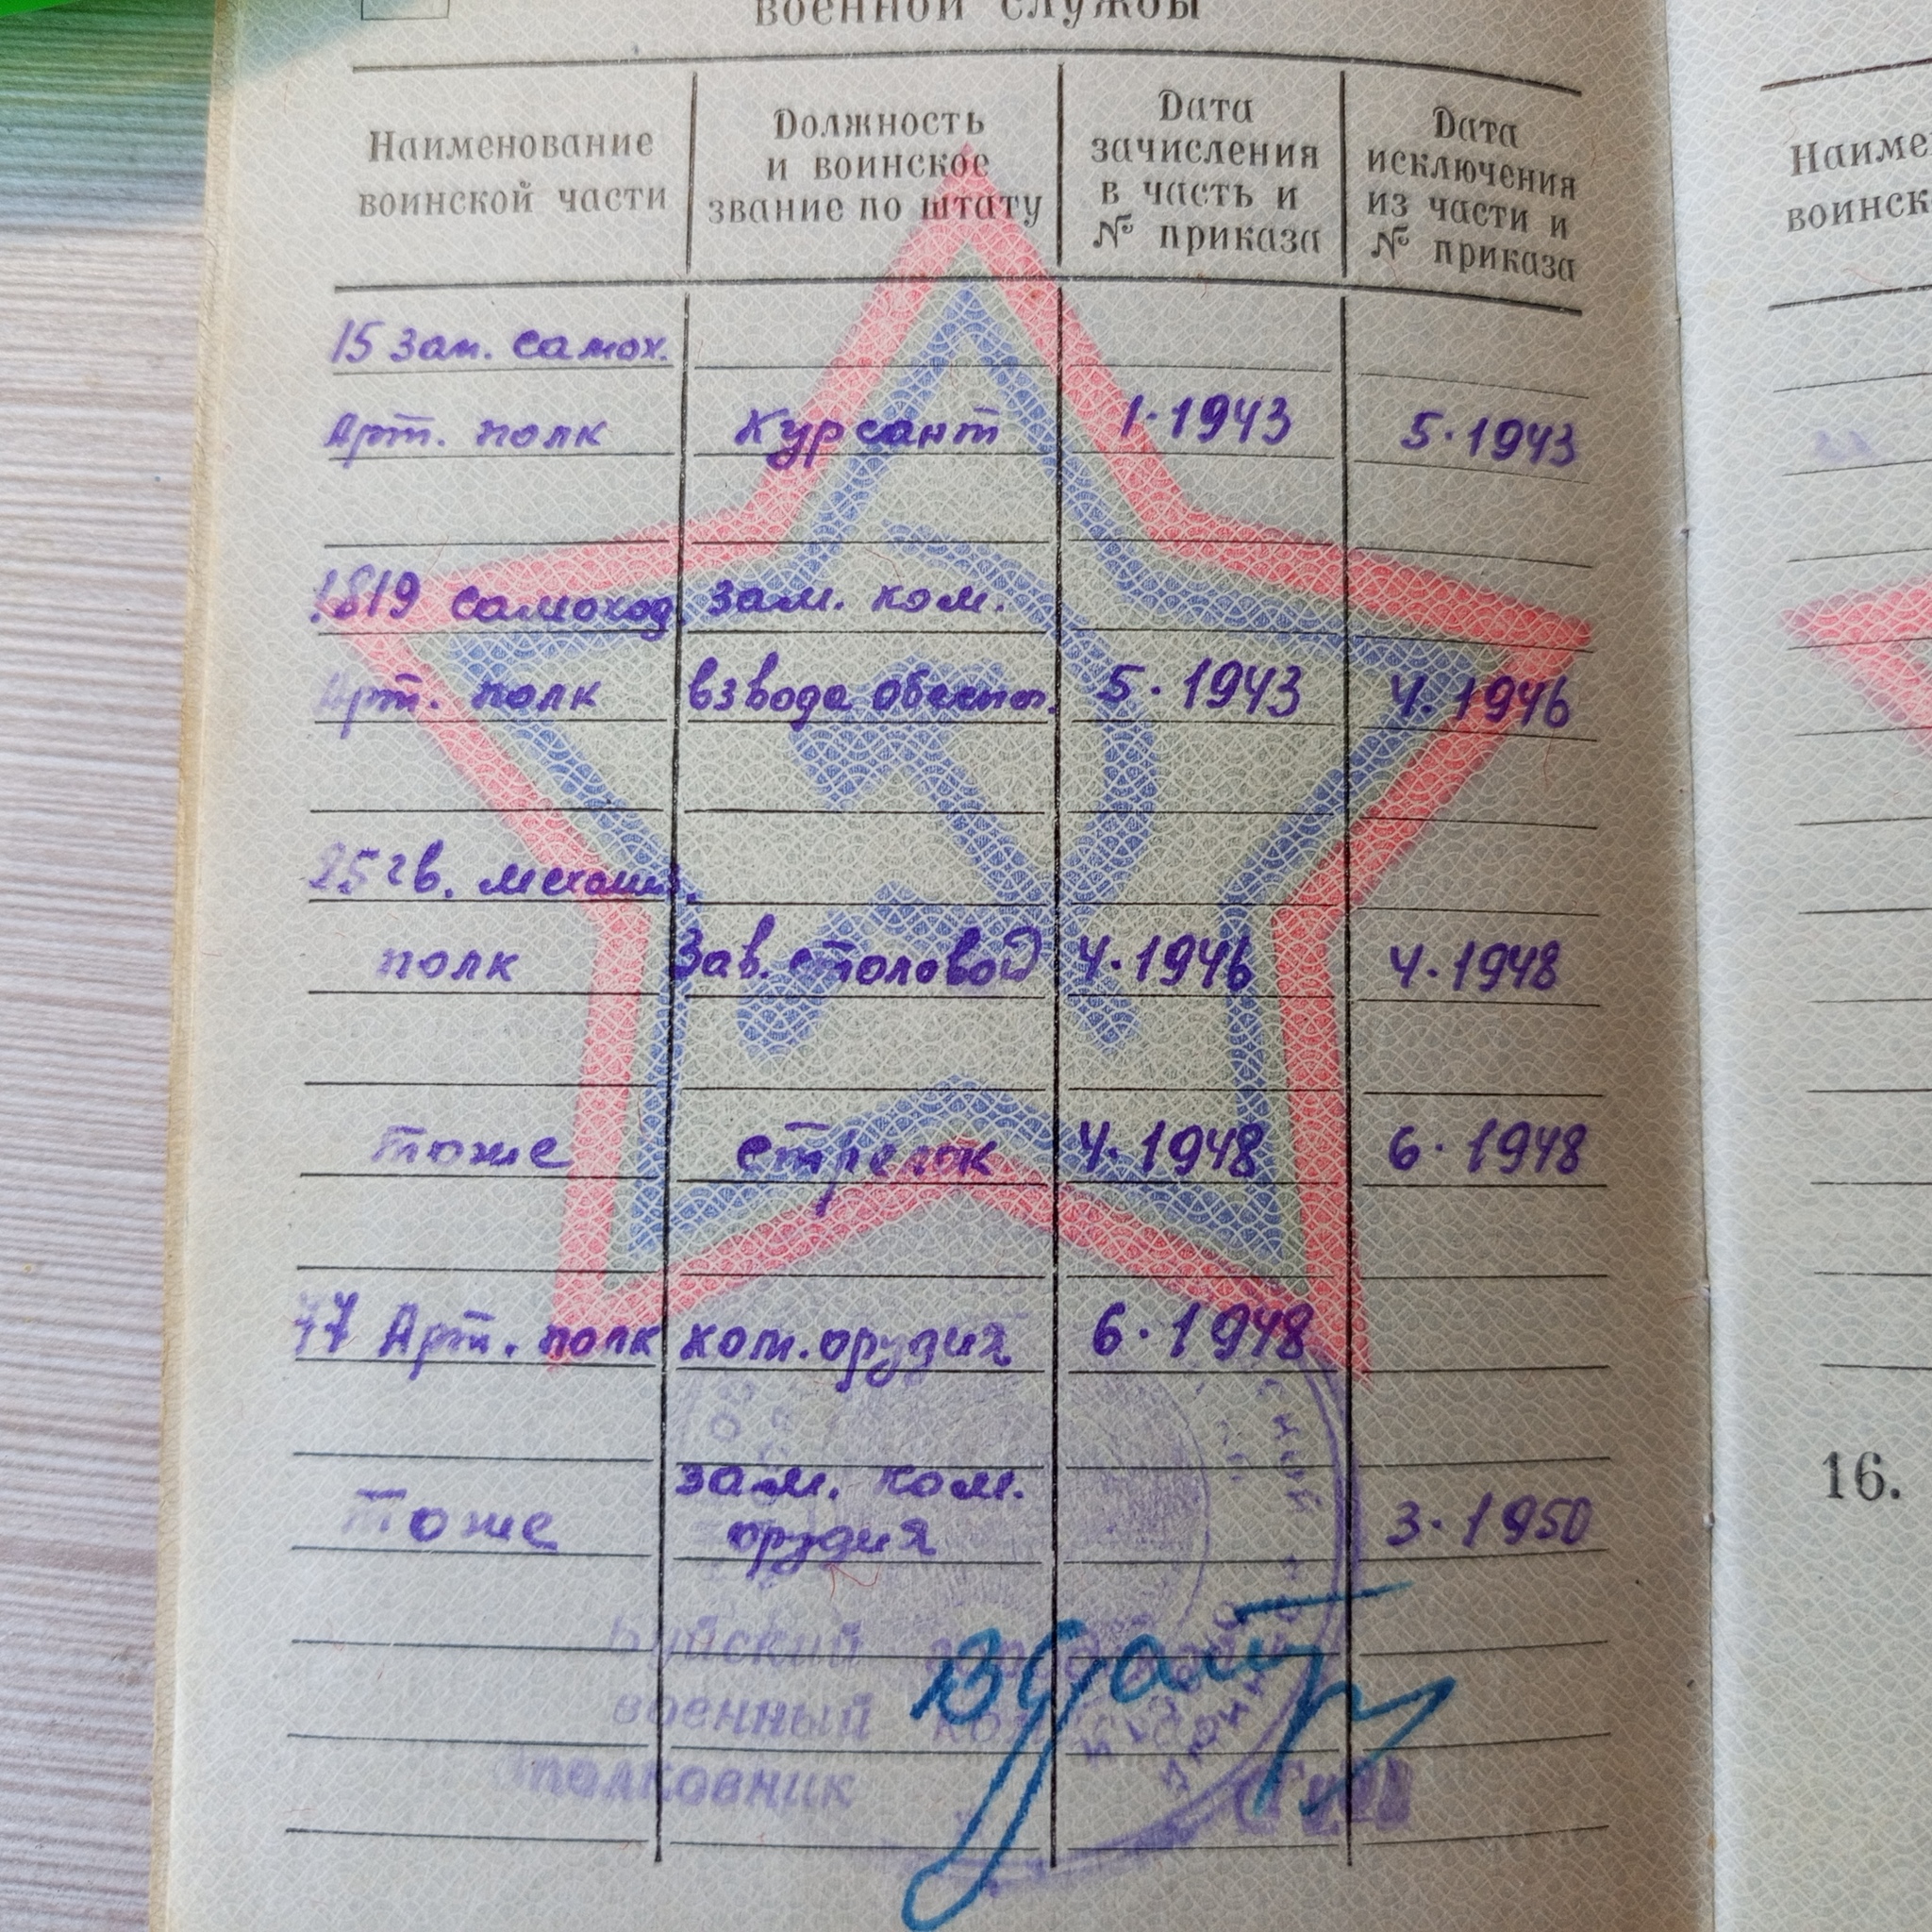 военной службы
Наименование воинской части
Должность и воинское звание по штату
Дата зачисления в часть и № приказа
Дата исключения из части и № приказа
15 зап. самох.
Арт. полк Курсант 1.1943 5.1943
1819 самоход. зам. ком.
Арт. полк взвода обесп. 5.1943 4.1946
25 гв. механиз.
полк Зав. столовой 4.1946 4.1948
тоже стрелок 4.1948 6.1948
77 Арт. полк ком. орудия 6.1948
зам. ком.
Тоже орудия 3.1950
военный
полковник
Наиме
воинск
16.